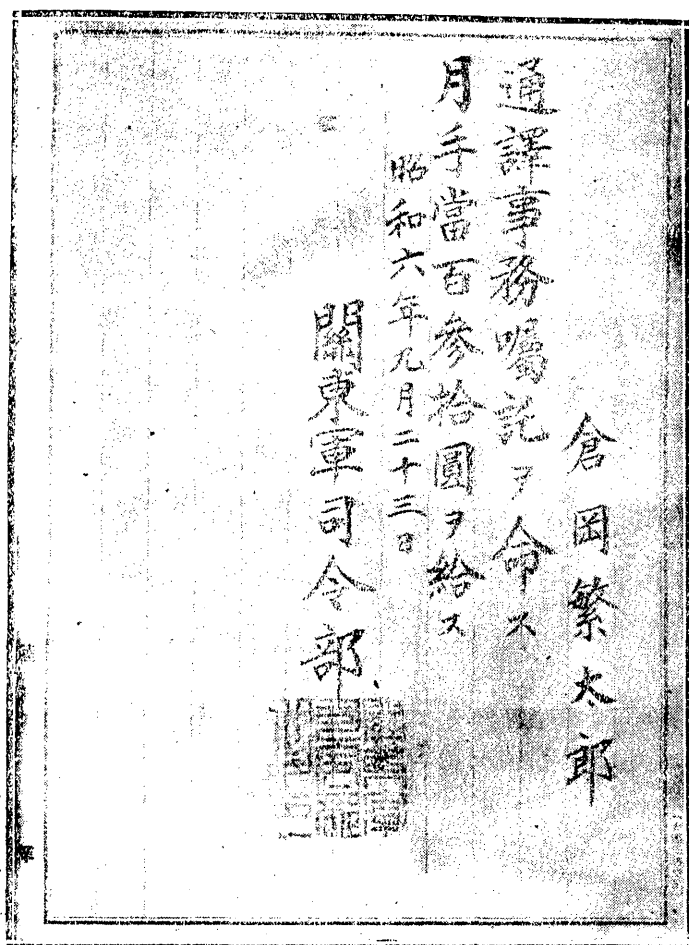 倉岡繁太郎
通譯事務囑託ヲ命ス
月手當百參拾圓ヲ給ス
昭和六年九月二十三日
關東軍司令部